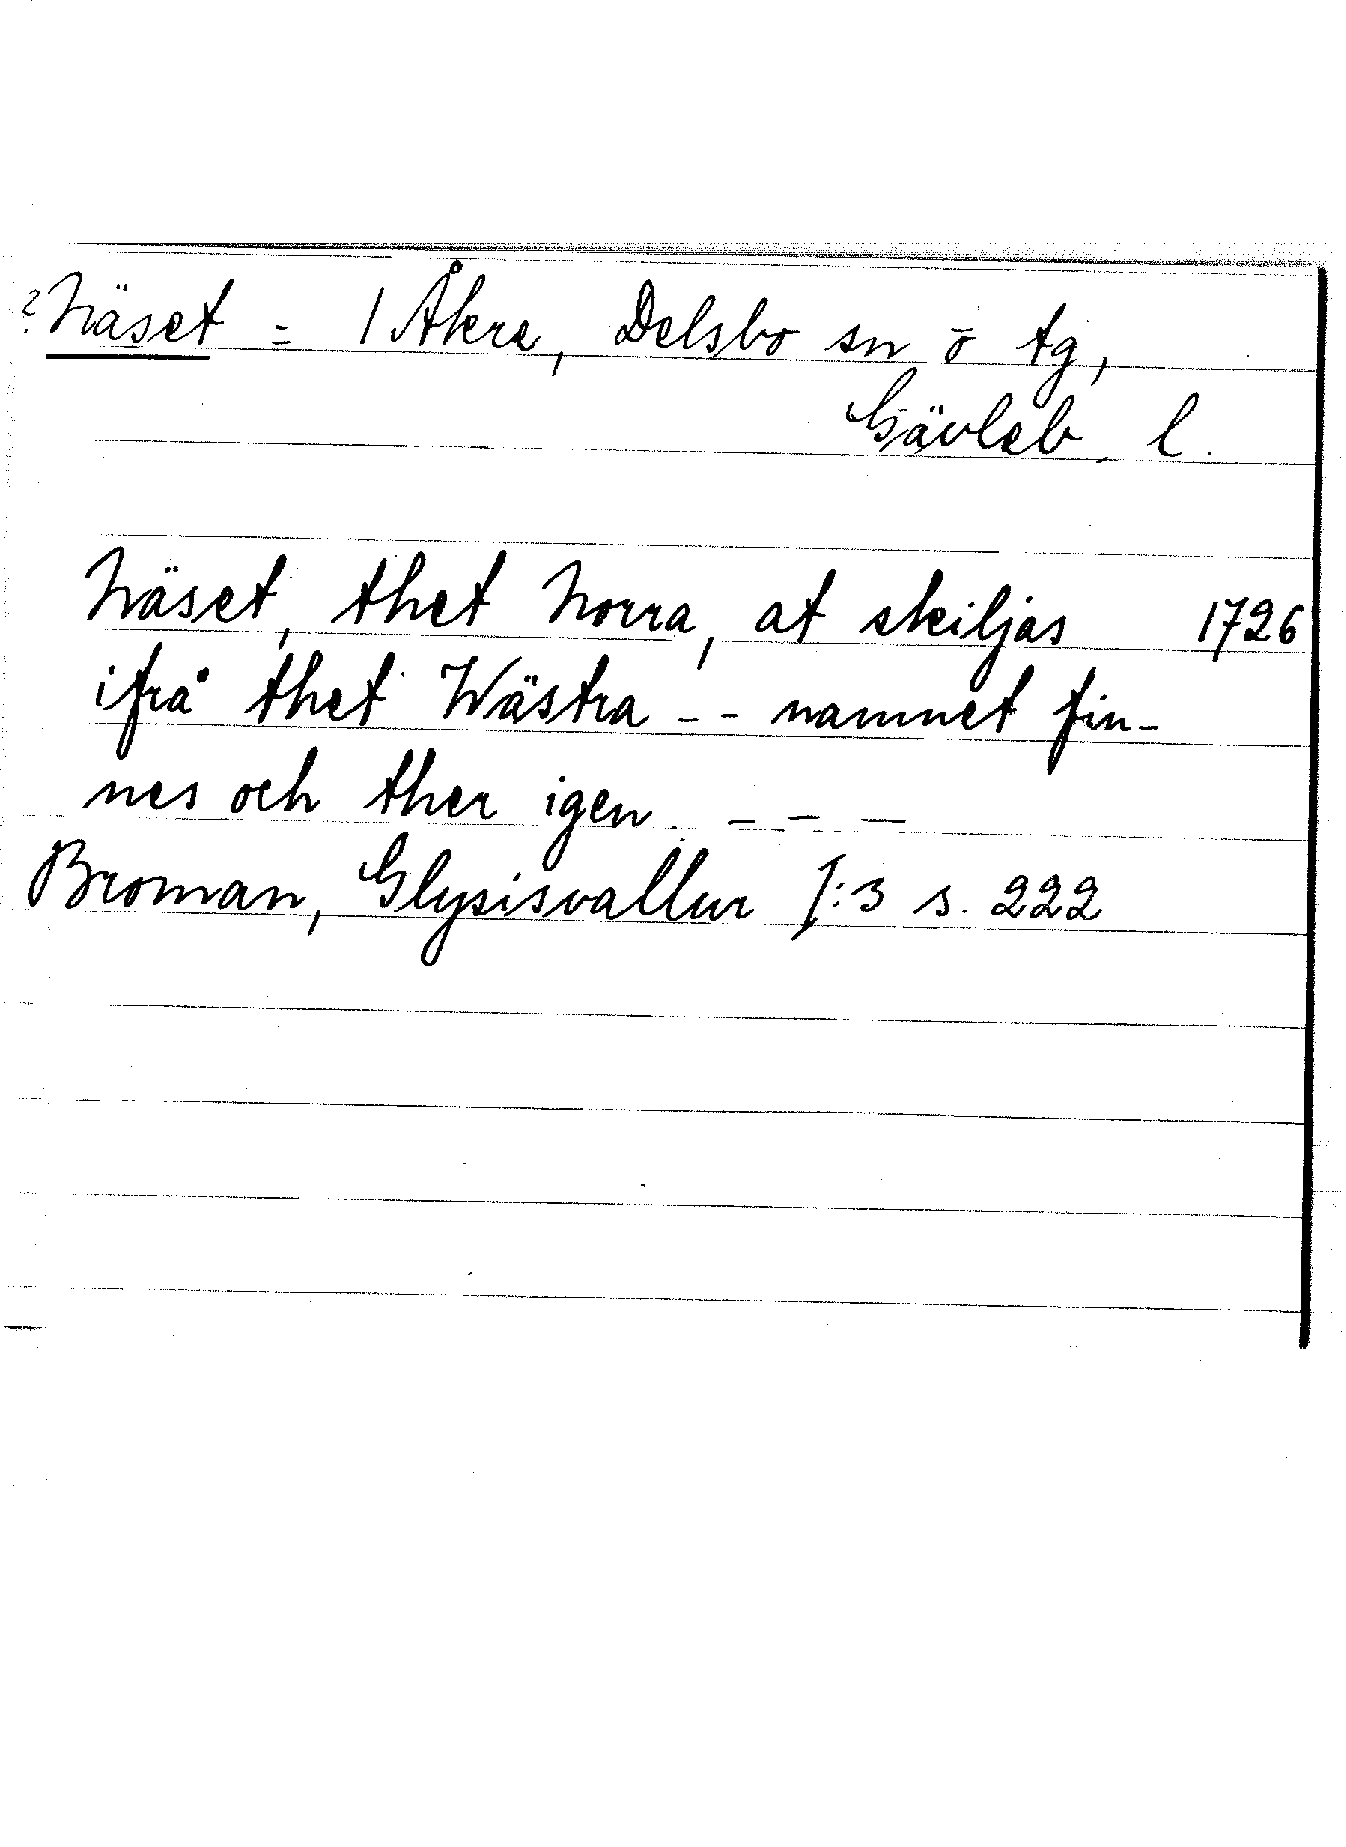 ?Näset = 1 Åkre, Delsbo sn o tg,
Gävleb. l.
Näset, thet Norra, at skiljas 1726
ifrå thet Wästra - - namnet fin-
nes och ther igen. - - -
Broman, Glysisvallur I:3 s. 222